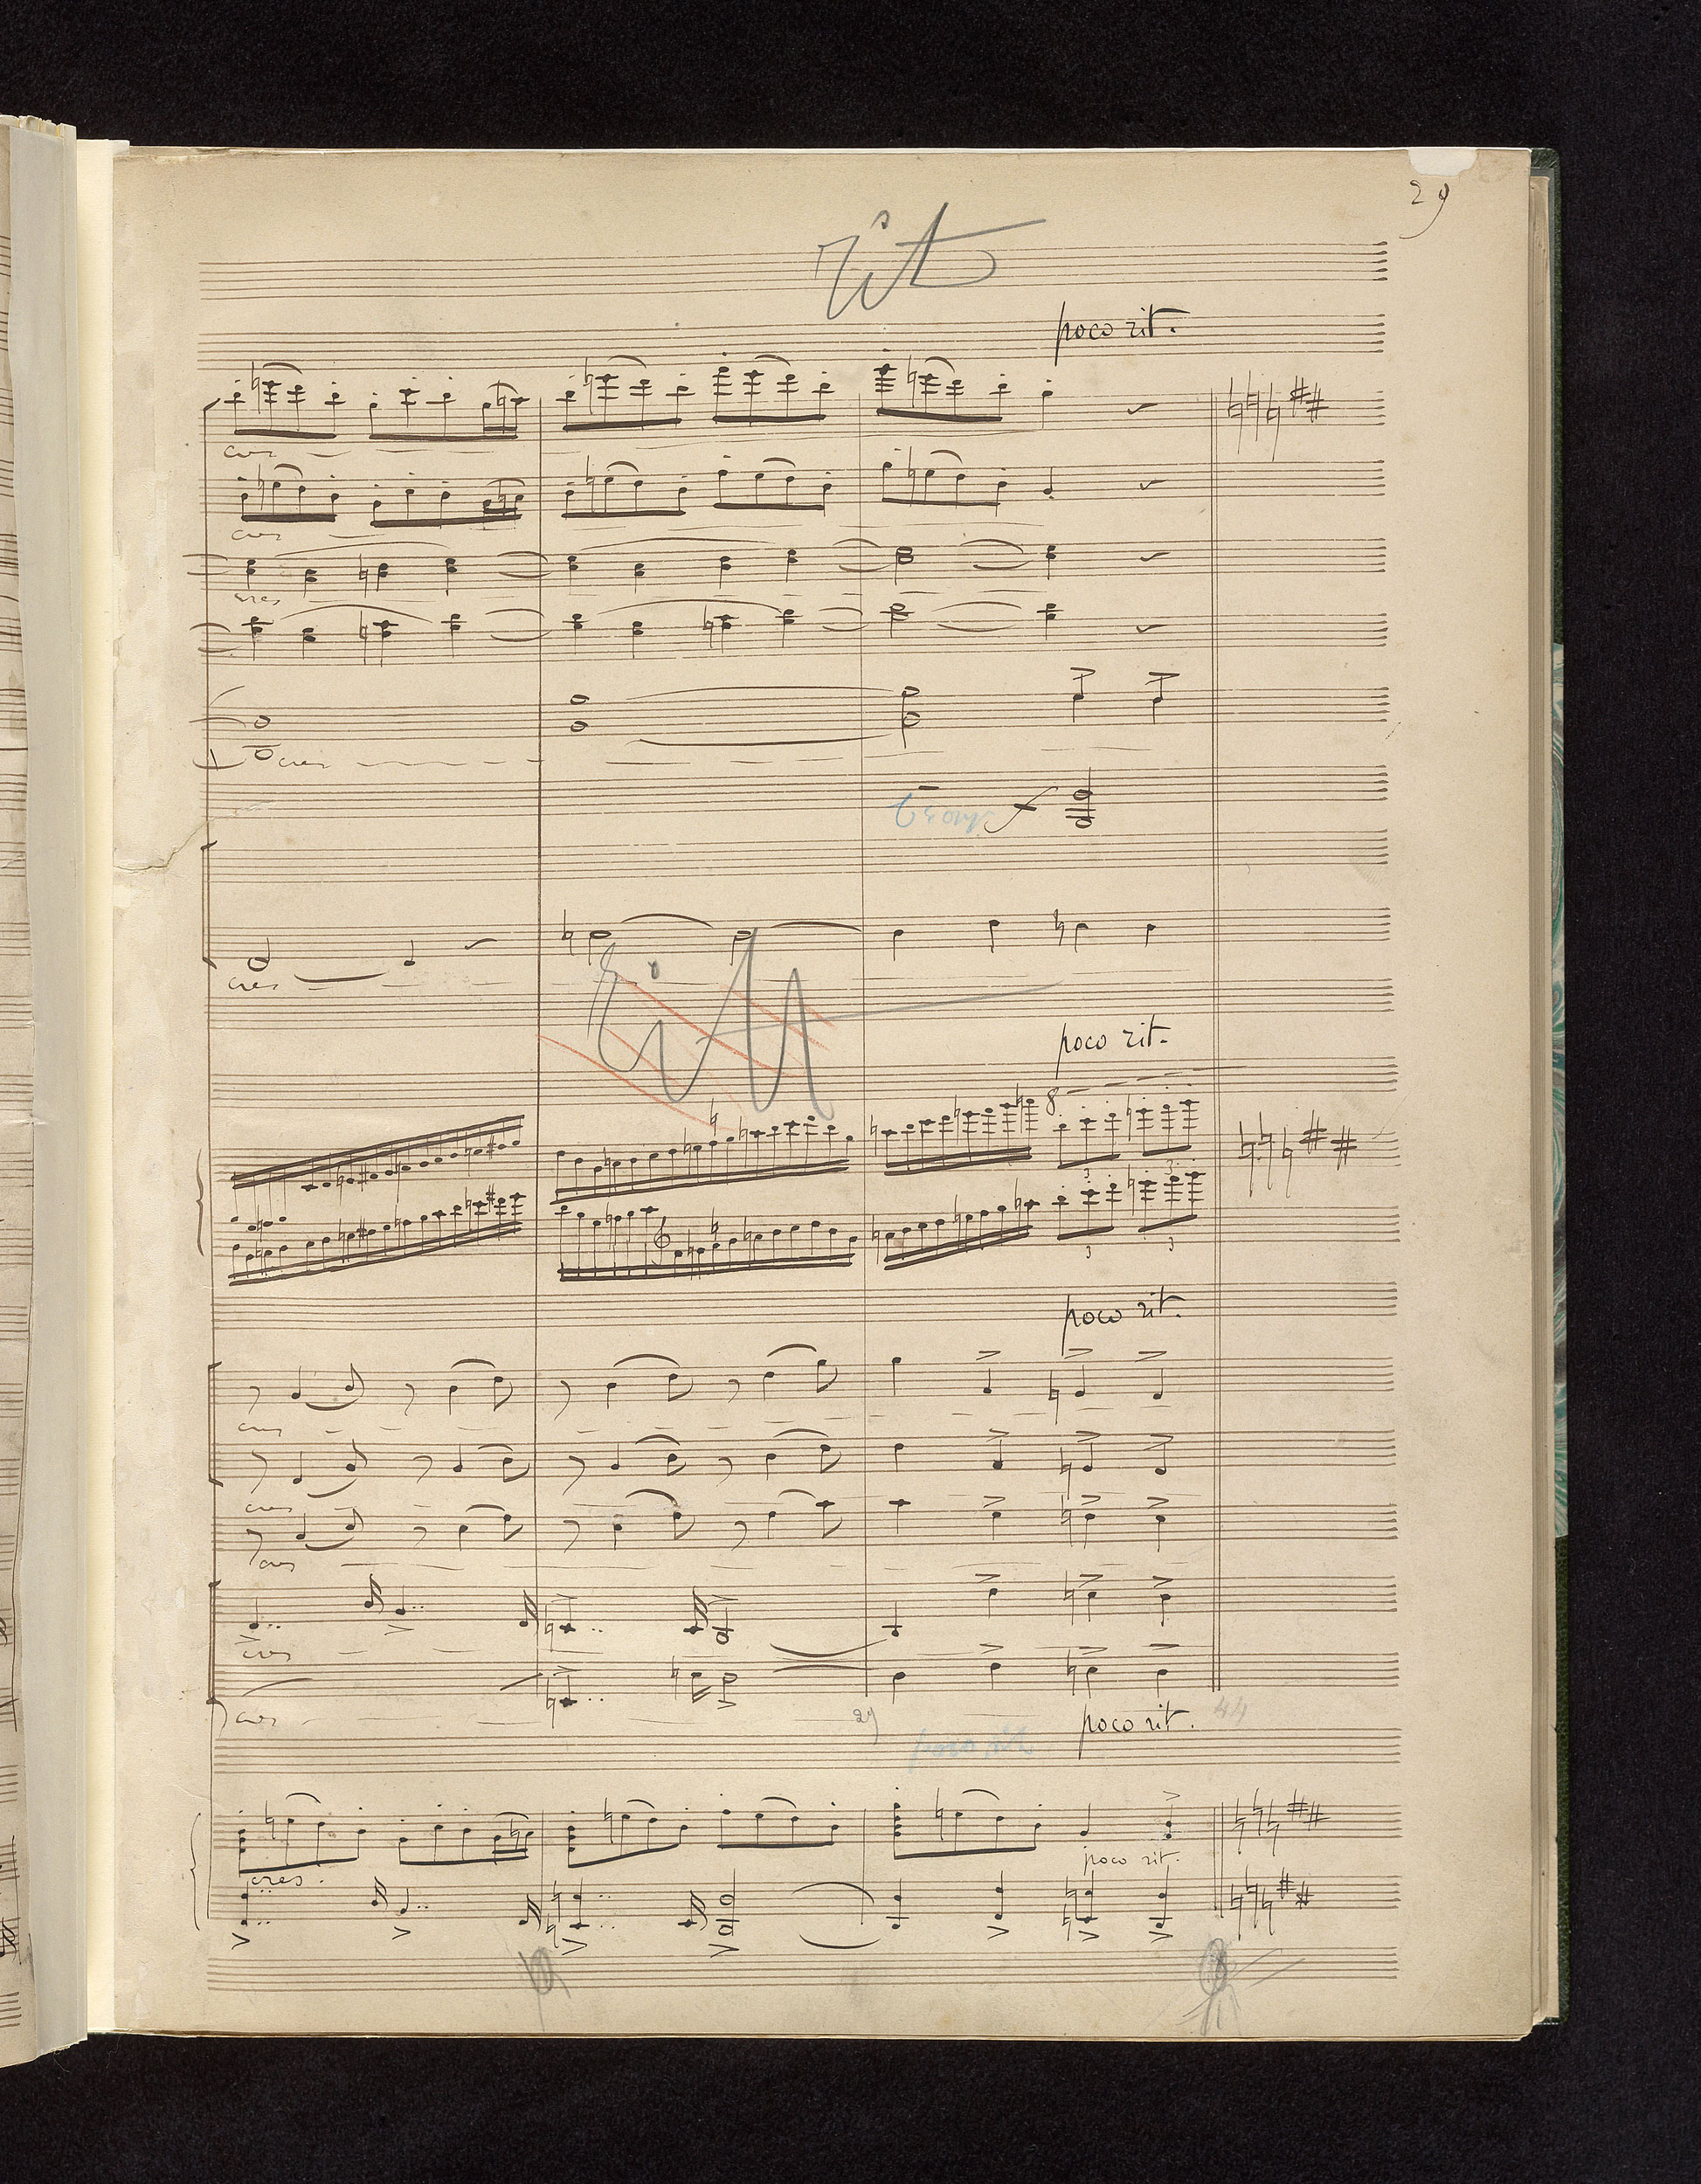 29
rit
poco rit.
cres
cres
cres
cres
f
cres
rit
poco rit.
8
3
3
3
3
poco rit.
cres
cres
cres
cres
cres
29
poco rit.
44
poco rit
poco rit.
cres.